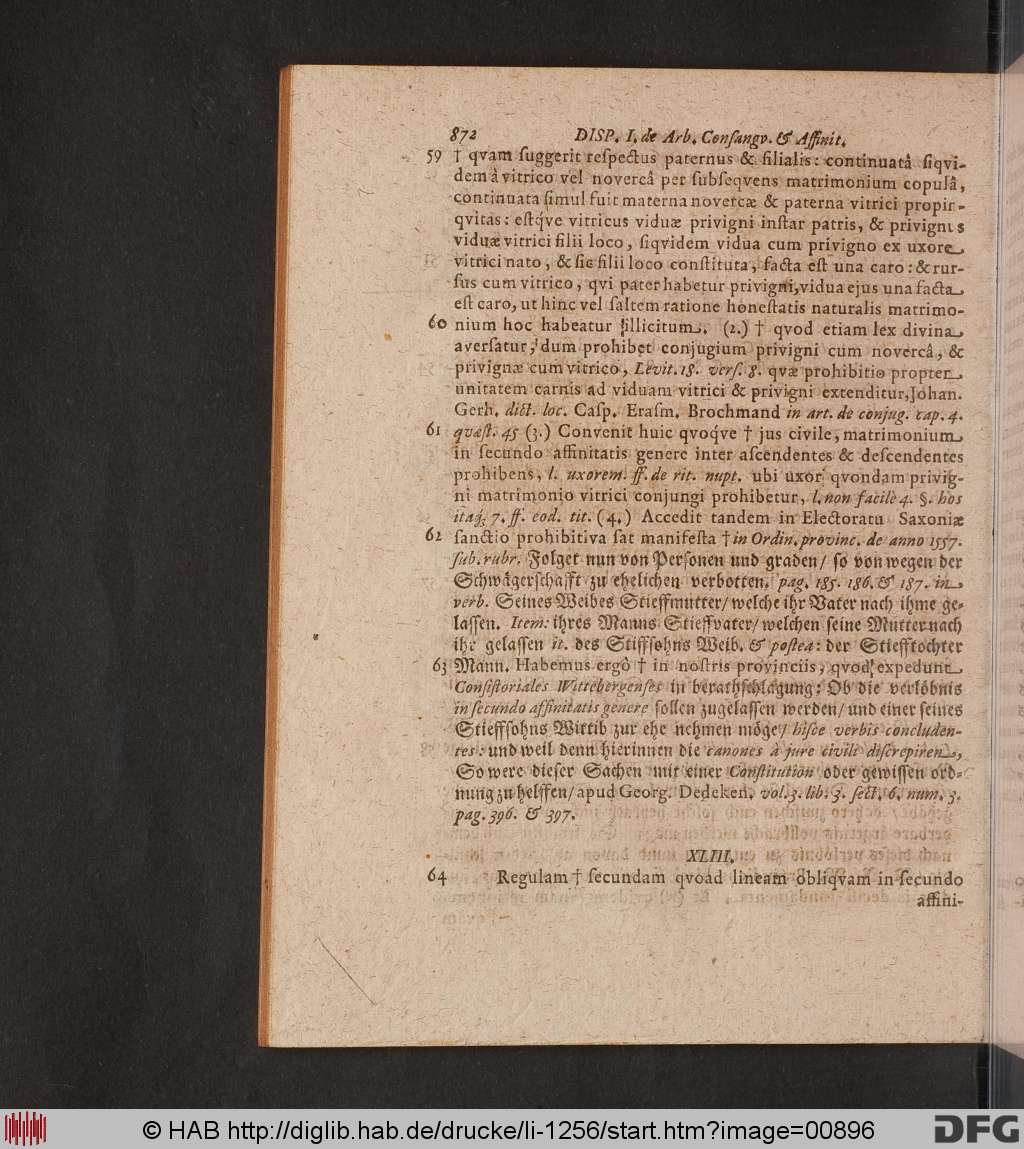 872 DISP. I. de Arb. Consangv. & Affinit.
59 † qvam suggerit respectus paternus & filialis: continuatâ siqvi-
dem â vitrico vel novercâ per subseqvens matrimonium copulâ,
continuata simul fuit materna novercæ & paterna vitrici propir-
qvitas: estq́ve vitricus viduæ privigni instar patris, & privignus
viduæ vitrici filii loco, siqvidem vidua cum privigno ex uxore
vitrici nato, & sic filii loco constituta, facta est una caro: & rur-
sus cum vitrico, qvi pater habetur privigni, vidua ejus una facta
est caro, ut hinc vel saltem ratione honestatis naturalis matrimo-
60 nium hoc habeatur illicitum. (2.) † qvod etiam lex divina
aversatur, dum prohibet conjugium privigni cum novercâ, &
privignæ cum vitrico, Levit. 18. vers. 8. qvæ prohibitio propter
unitatem carnis ad viduam vitrici & privigni extenditur, Johan.
Gerh. dict. loc. Casp. Erasm. Brochmand in art. de conjug. cap. 4.
61 qvæst. 45 (3.) Convenit huic qvoq́ve † jus civile, matrimonium
in secundo affinitatis genere inter ascendentes & descendentes
prohibens, l. uxorem. ff. de rit. nupt. ubi uxor qvondam privig-
ni matrimonio vitrici conjungi prohibetur, l. non facile 4. §. hos
itaq; 7. ff. eod. tit. (4.) Accedit tandem in Electoratu Saxoniæ
62 sanctio prohibitiva sat manifesta † in Ordin. provinc. de anno 1557.
sub. rubr. Folget nun von Personen und graden / so von wegen der
Schwägerschafft zu ehelichen verbotten. pag. 185. 186. & 187. in
verb. Seines Weibes Stieffmutter / welche ihr Vater nach ihme ge-
lassen. Item: ihres Manns Stieffvater / welchen seine Mutter nach
ihr gelassen it. des Stiffsohns Weib. & postea: der Stiefftochter
63 Mann. Habemus ergò † in nostris provinciis, qvod expedunt
Consistoriales Wittebergenses in berathschlagung: Ob die verlöbnis
in secundo affinitatis genere sollen zugelassen werden / und einer seines
Stieffsohns Wittib zur ehe nehmen möge / hisce verbis concluden-
tes: und weil denn hierinnen die canones à jure civili discrepiren,
So were dieser Sachen mit einer Constitution oder gewissen ord-
nung zu helffen / apud Georg. Dedeken. vol. 3. lib. 3. sect. 6. num. 3.
pag. 396. & 397.
XLIII.
64 Regulam † secundam qvoad lineam obliqvam in secundo
affini-
© HAB http://diglib.hab.de/drucke/li-1256/start.htm?image=00896
DFG